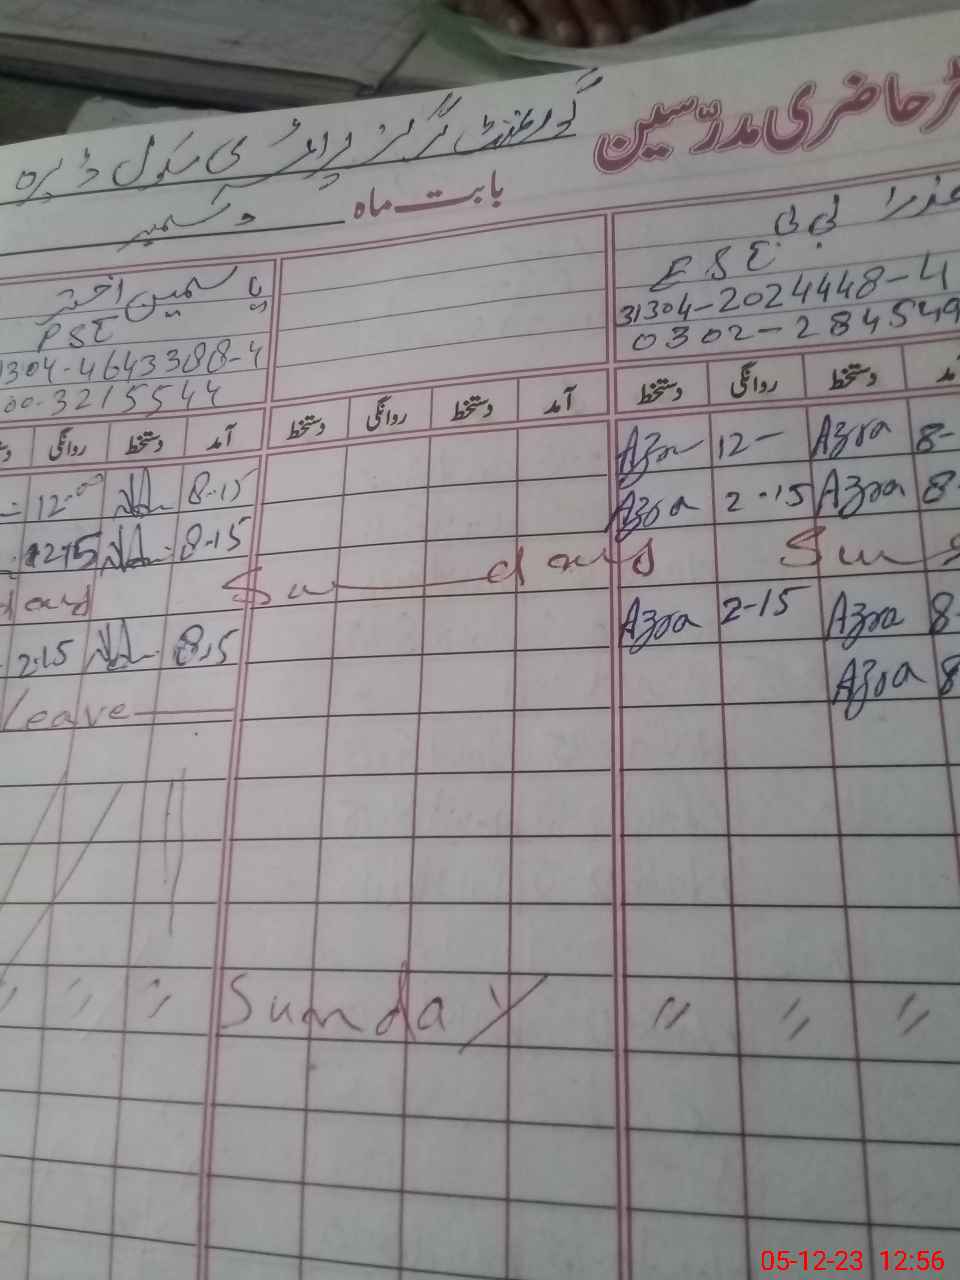 ٹر حاضری مدرّسین
گورنمنٹ گرلز پرائمری سکول ڈیرہ
بابت ماہ دسمبر
عذرا بی بی
ESE
31304-2024448-4
0302-284549
یاسمین اختر
PSE
1304-4643388-4
00-3215544
آمد دستخط روانگی دستخط آمد دستخط روانگی دستخط آمد دستخط روانگی
8- Azra 12- Azra 8-15 12-00
8- Azra 2-15 Azra 8-15 12-15
Sun Sundays days
8- Azra 2-15 Azra 8.15 2.15
8 Azra Leave
" " " Sunday " " "
05-12-23 12:56